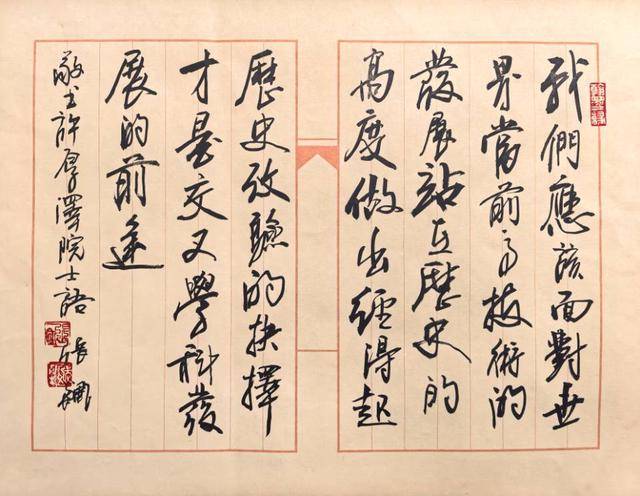 我們應該面對世
界當前高技術的
發展站在歷史的
高度做出經得起
歷史攷驗的抉擇
才是交叉學科發
展的前途
敬書許厚澤院士語
張